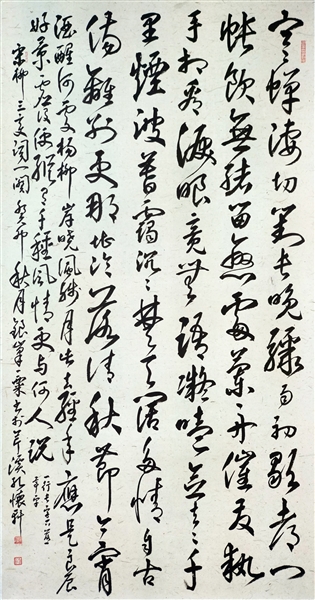 寒蝉凄切对长晚骤雨初歇都门
帐饮無绪留恋處兰舟催发执
手相看泪眼竟無语凝噎念去去千
里煙波暮靄沉沉楚天阔多情自古
伤離别更那堪冷落清秋节今宵
酒醒何處杨柳岸晓風残月此去經年應是良辰
好景虚设便縱有千种風情更与何人说
宋柳三变词一阕 秋月